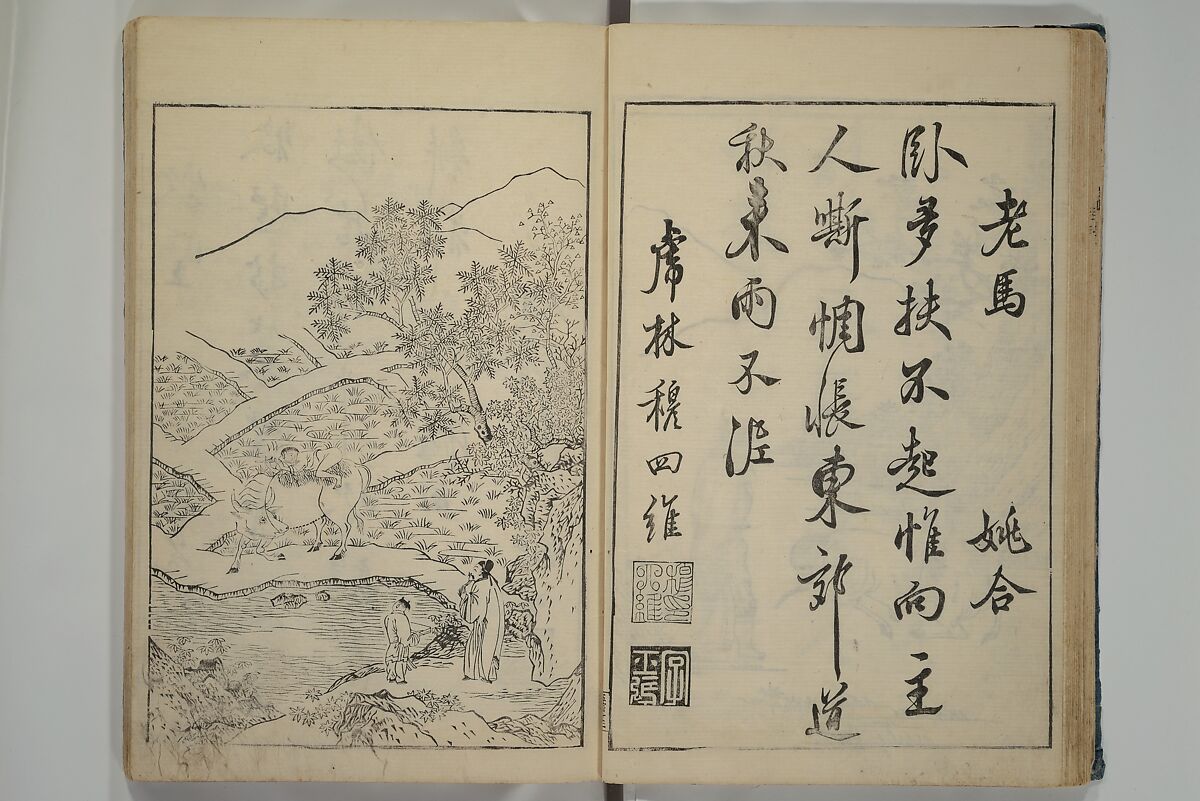 老馬 姚合
臥多扶不起惟向主
人嘶惆悵東郊道
秋来雨不
虎林穆四維
穆印四維